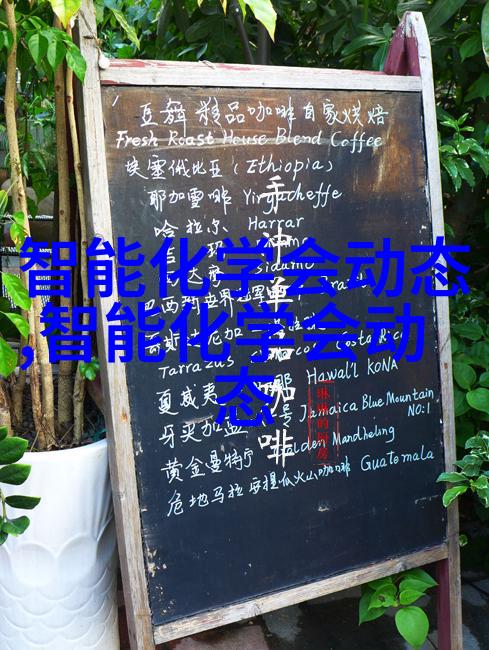 豆解精品咖啡自家烘焙
Fresh Roast House Blend Coffee
埃塞俄比亚 (Ethiopia)
耶加雪啡 Yirgacheffe
哈拉尔 Harrar
Sidamo
巴西
哥斯达尼加 Costa Rica
Tarrazus
夏威夷 Hawai'l KONA
牙买加蓝 号 Jamaica Blue Mountain
NO:1
黄金曼特宁 Golden Mandheling
危地马拉安提瓜火山咖啡 Guatemala
手冲单品咖啡
琳琳的厨房
智能化学会动态
,智能化学会动
态